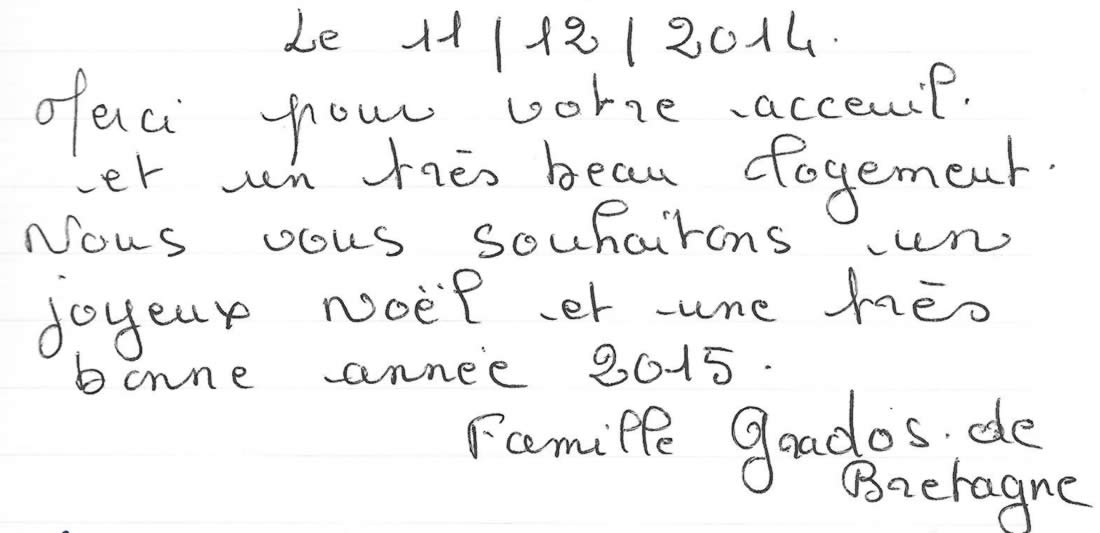 Le 11/12/2014.
Merci pour votre acceuil.
et un très beau logement.
Nous vous souhaitons un
joyeux Noël et une très
bonne année 2015.
Famille Grados. de
Bretagne